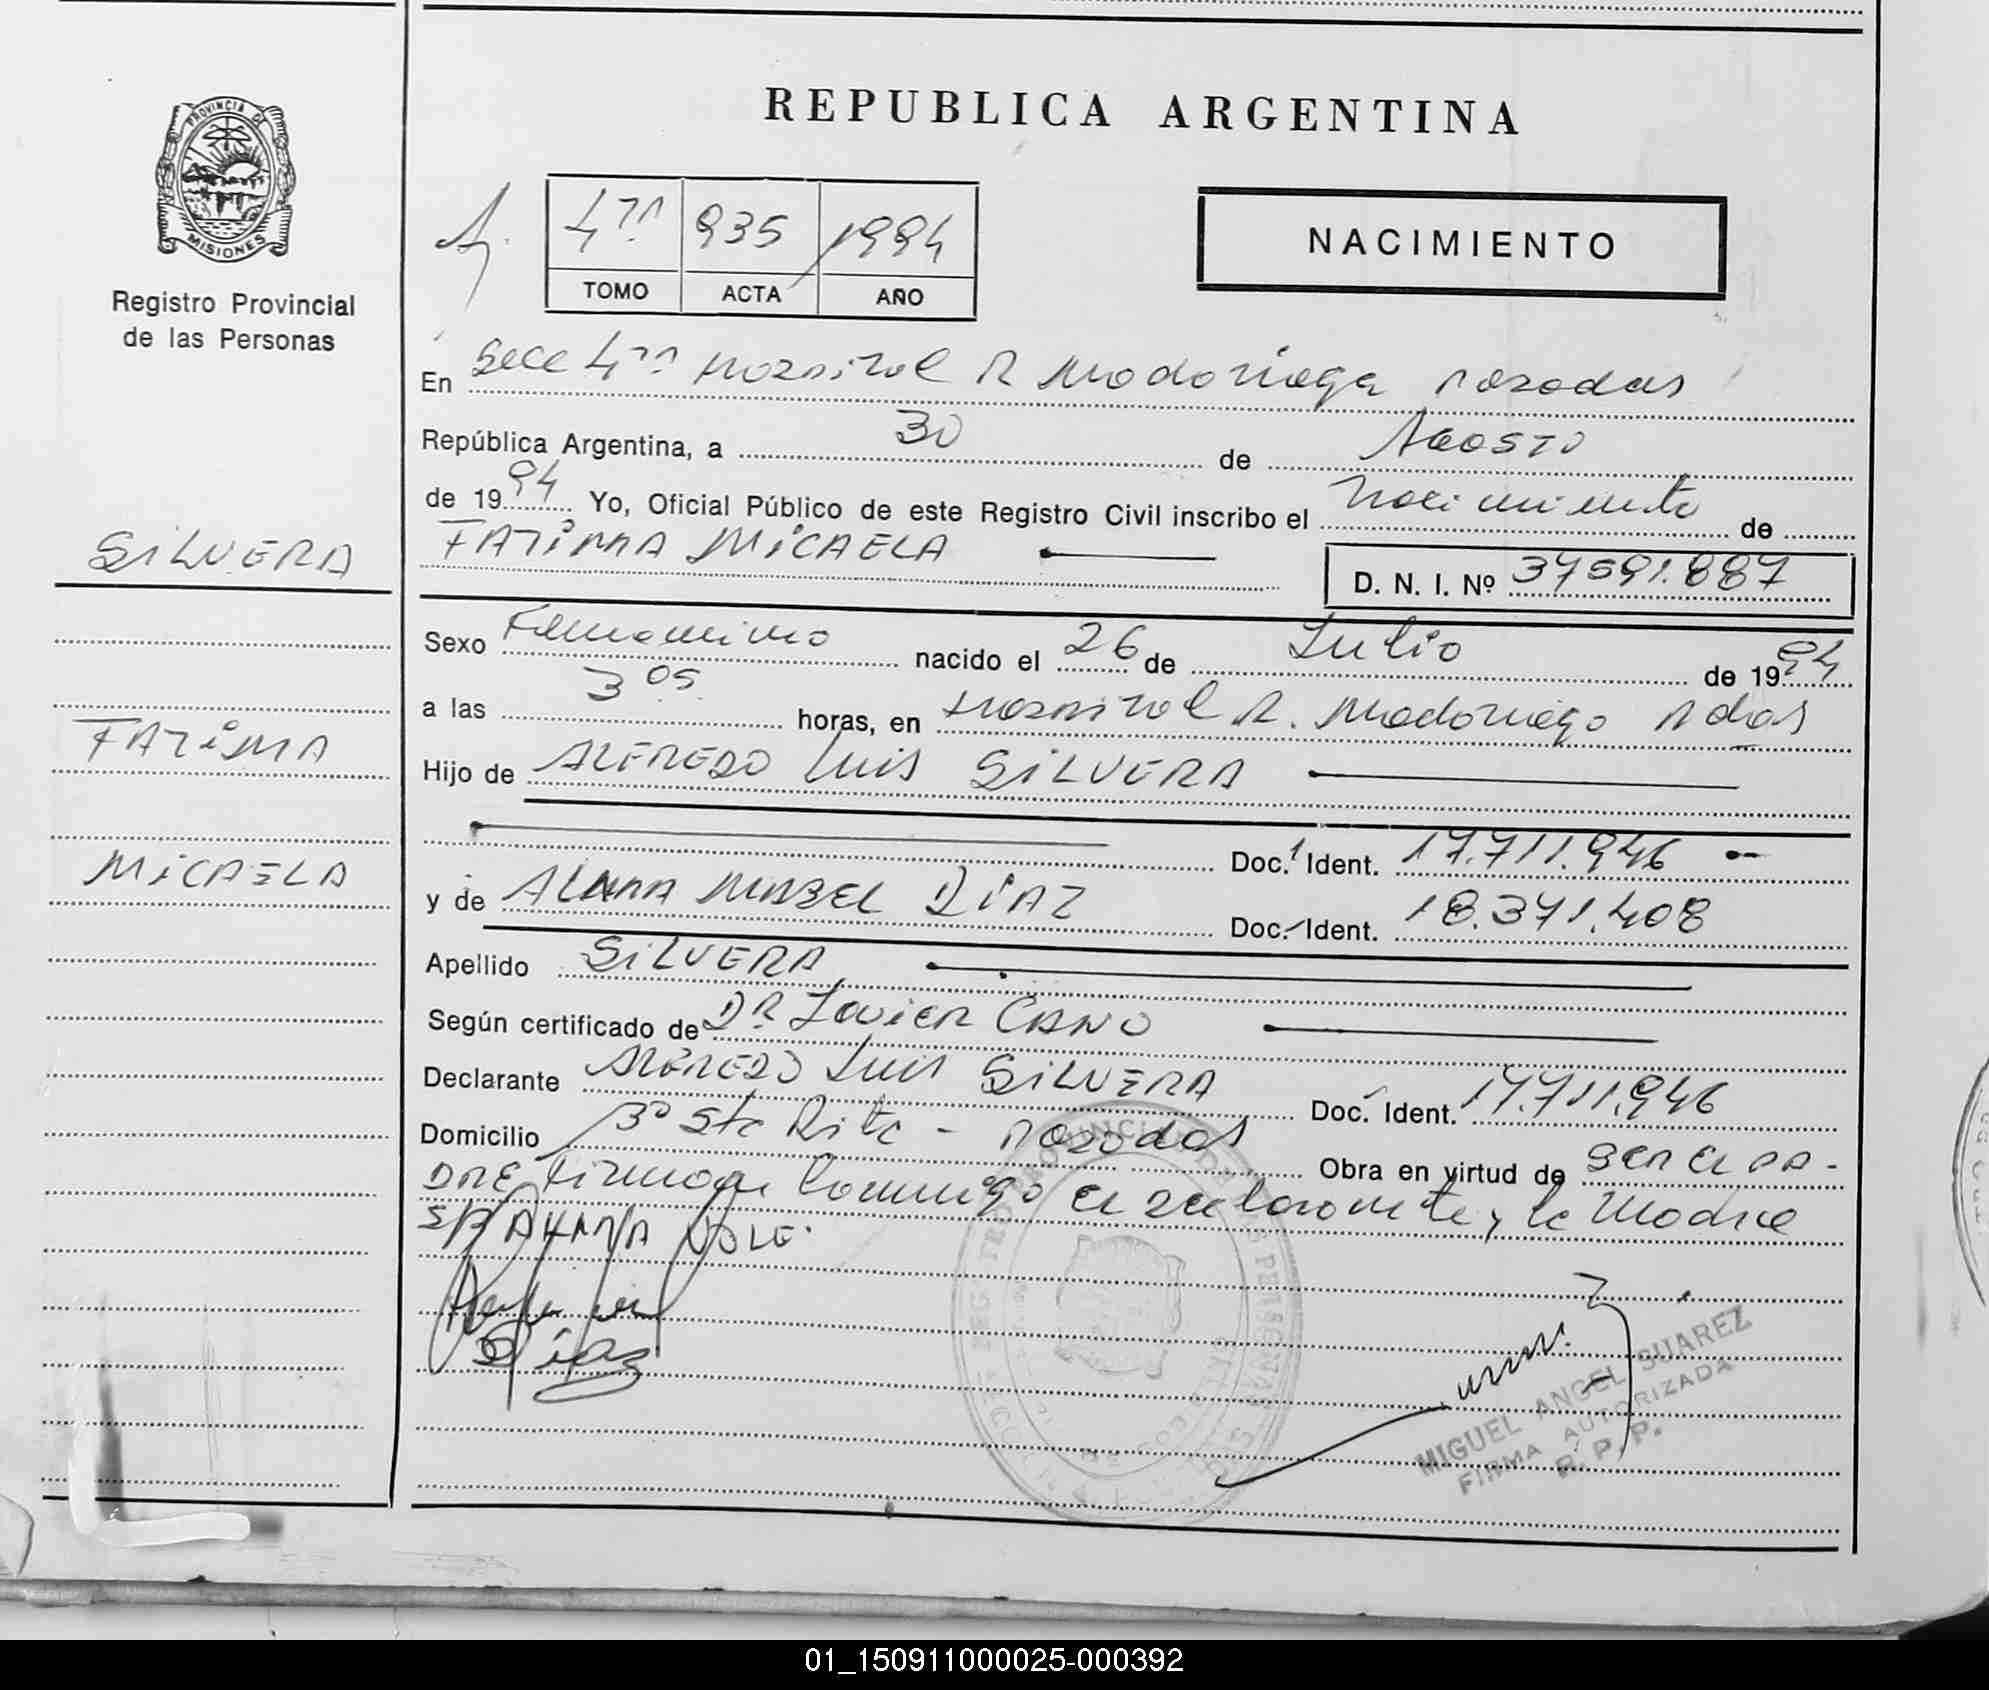 REPUBLICA ARGENTINA
PROVINCIA DE
MISIONES
Registro Provincial
de las Personas
4ta 935 1994
TOMO ACTA AÑO
NACIMIENTO
En Secc 4ta Hospital R Madariaga Posadas
República Argentina, a 30 de Agosto
de 1994 Yo, Oficial Público de este Registro Civil inscribo el Nacimiento de
FATIMA MICAELA
D. N. I. Nº 37591.887
SILVERA
FATIMA
MICAELA
Sexo Femenino nacido el 26 de Julio de 1994
a las 3 05 horas, en Hospital R. Madariaga Pdas
Hijo de ALFREDO Luis SILVERA
Doc. Ident. 17.711.946
y de ALMA MABEL DIAZ Doc. Ident. 18.371.408
Apellido SILVERA
Según certificado de DR Javier CANO
Declarante ALFREDO Luis SILVERA Doc. Ident. 17.711.946
Domicilio Bº Sta Rita - Posadas Obra en virtud de SER EL PA-
DRE Firman conmigo el declarante y la Madre
Diaz
MIGUEL ANGEL SUAREZ
FIRMA AUTORIZADA
R. P. P.
01_150911000025-000392